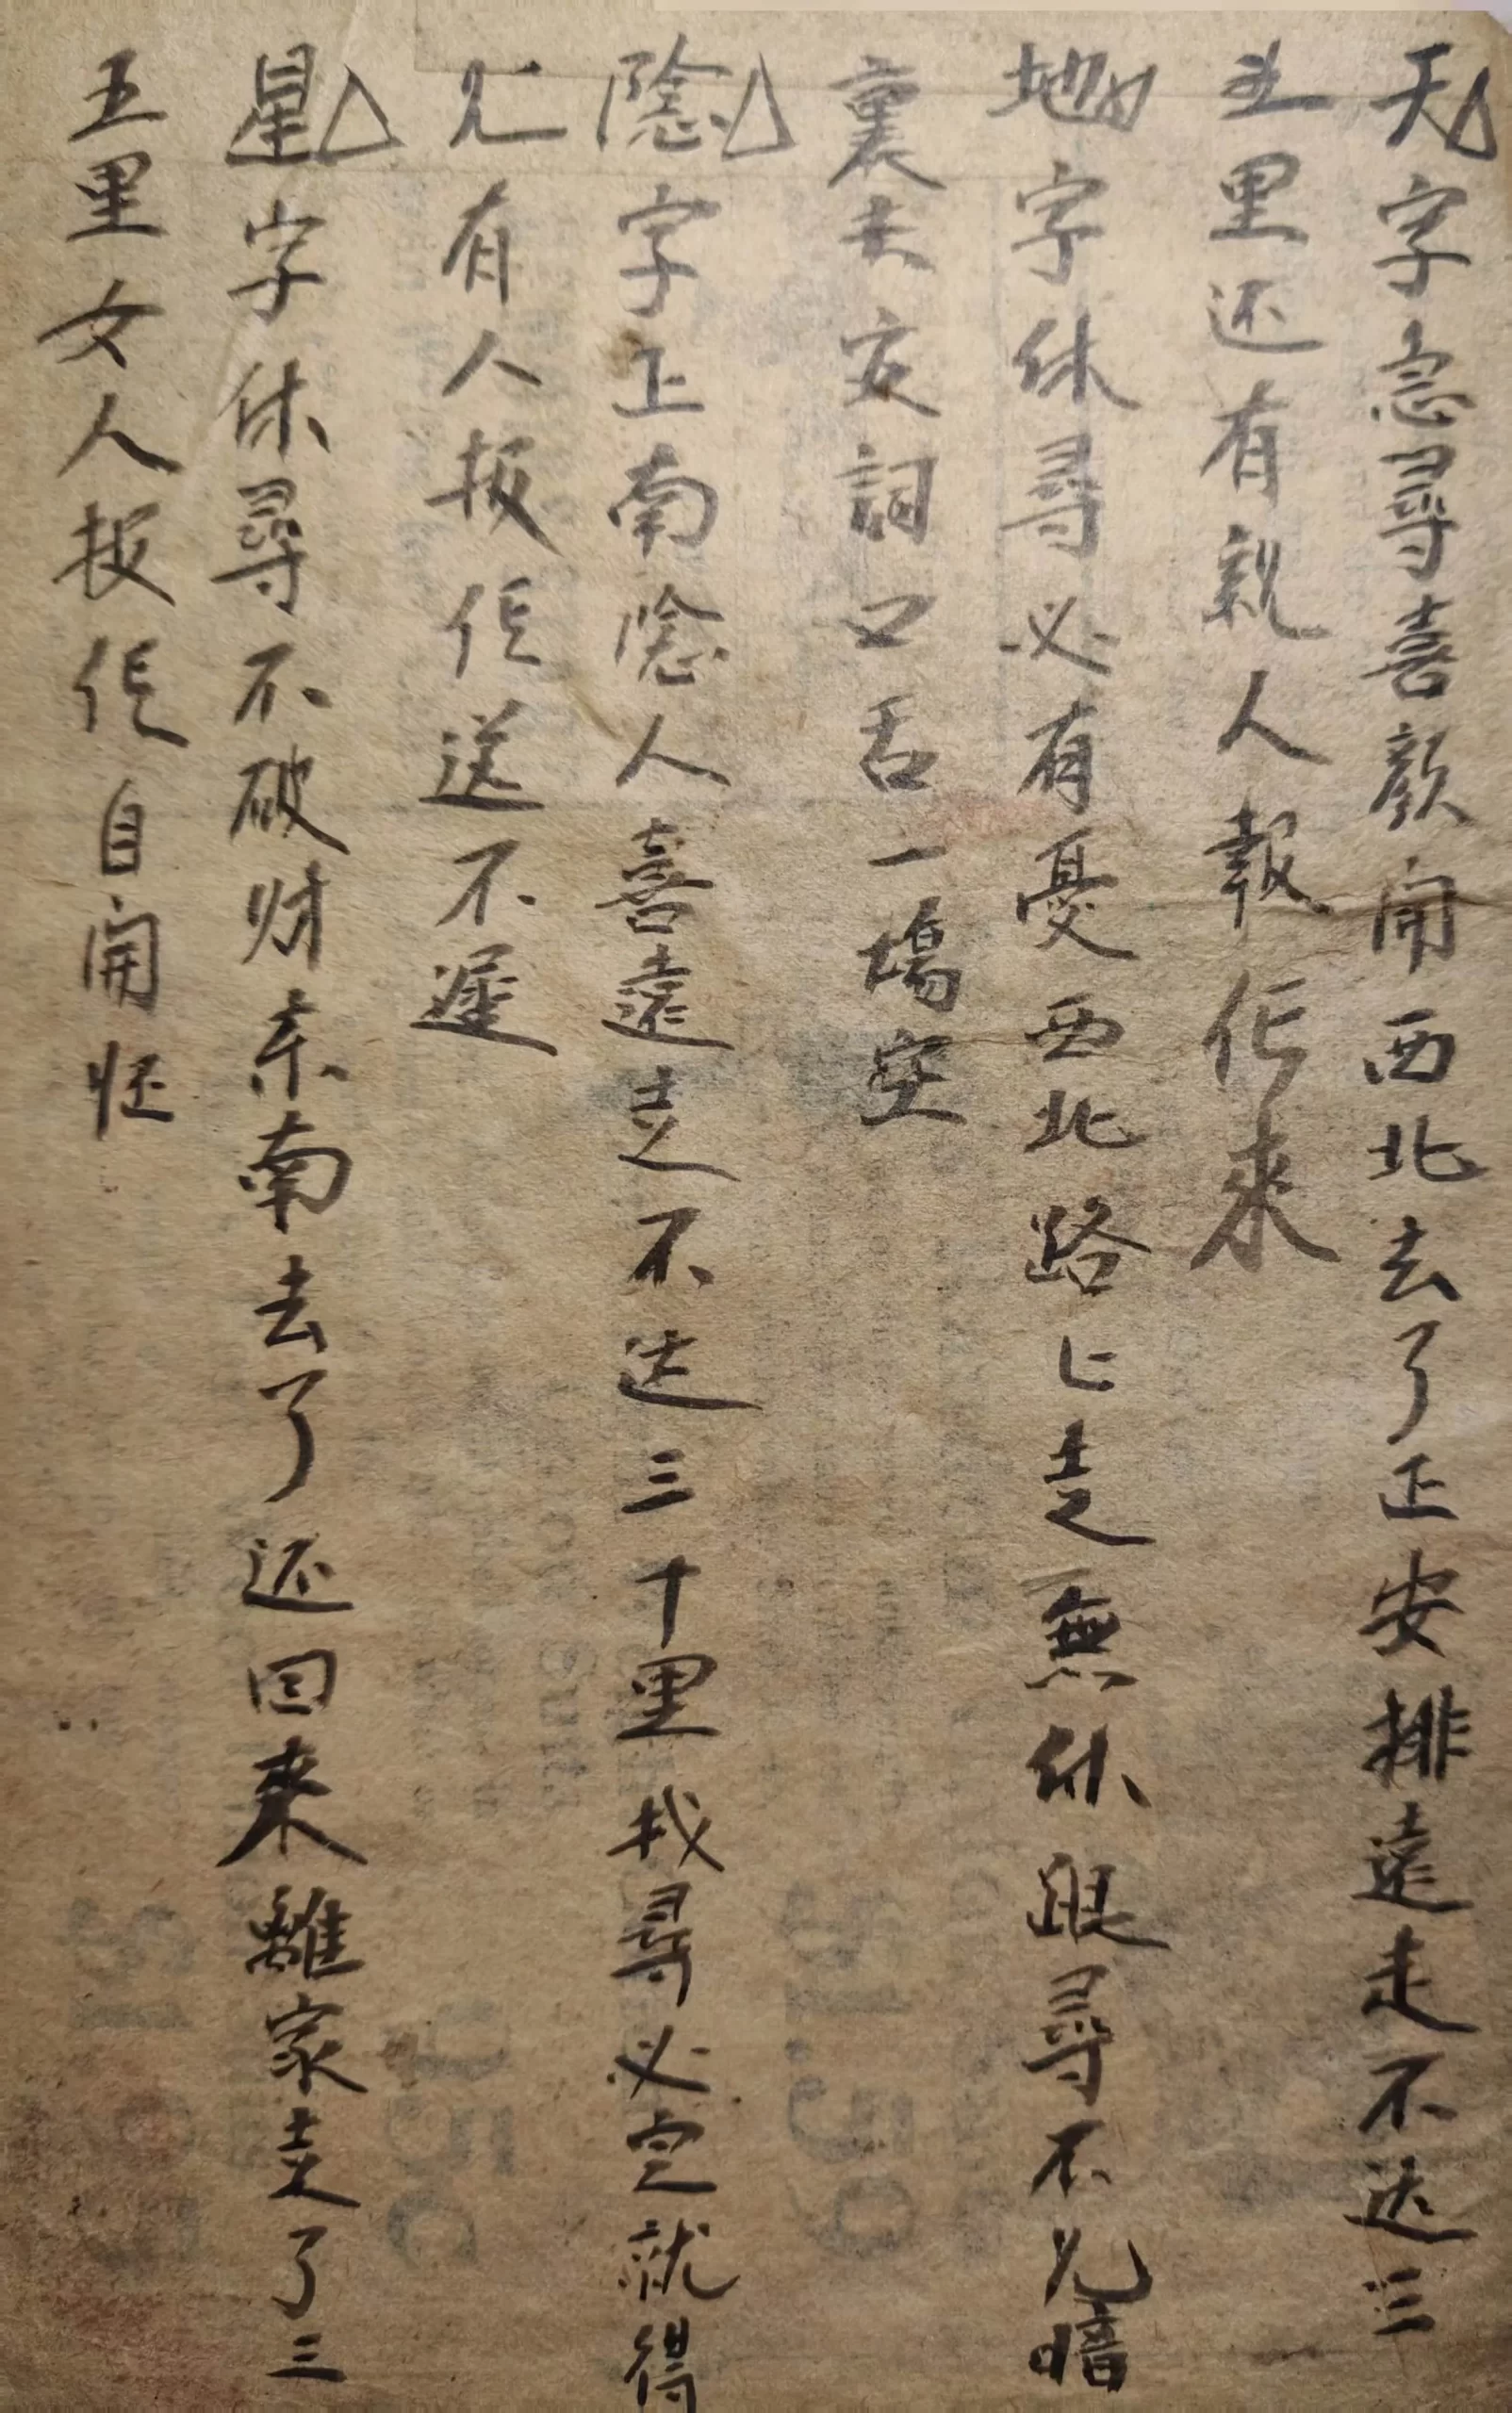 天字急尋喜顏開西北去了正安排遠走不达三
五里还有親人報伩来
地字休尋必有憂西北路上走無休跟尋不见暗
裏去交詞口舌一場空
隂字上南隂人喜遠走不达三十里找尋必定就得
见有人报伩送不遲
星字休尋不破财东南去了还回來離家走了三
五里女人报伩自開怀